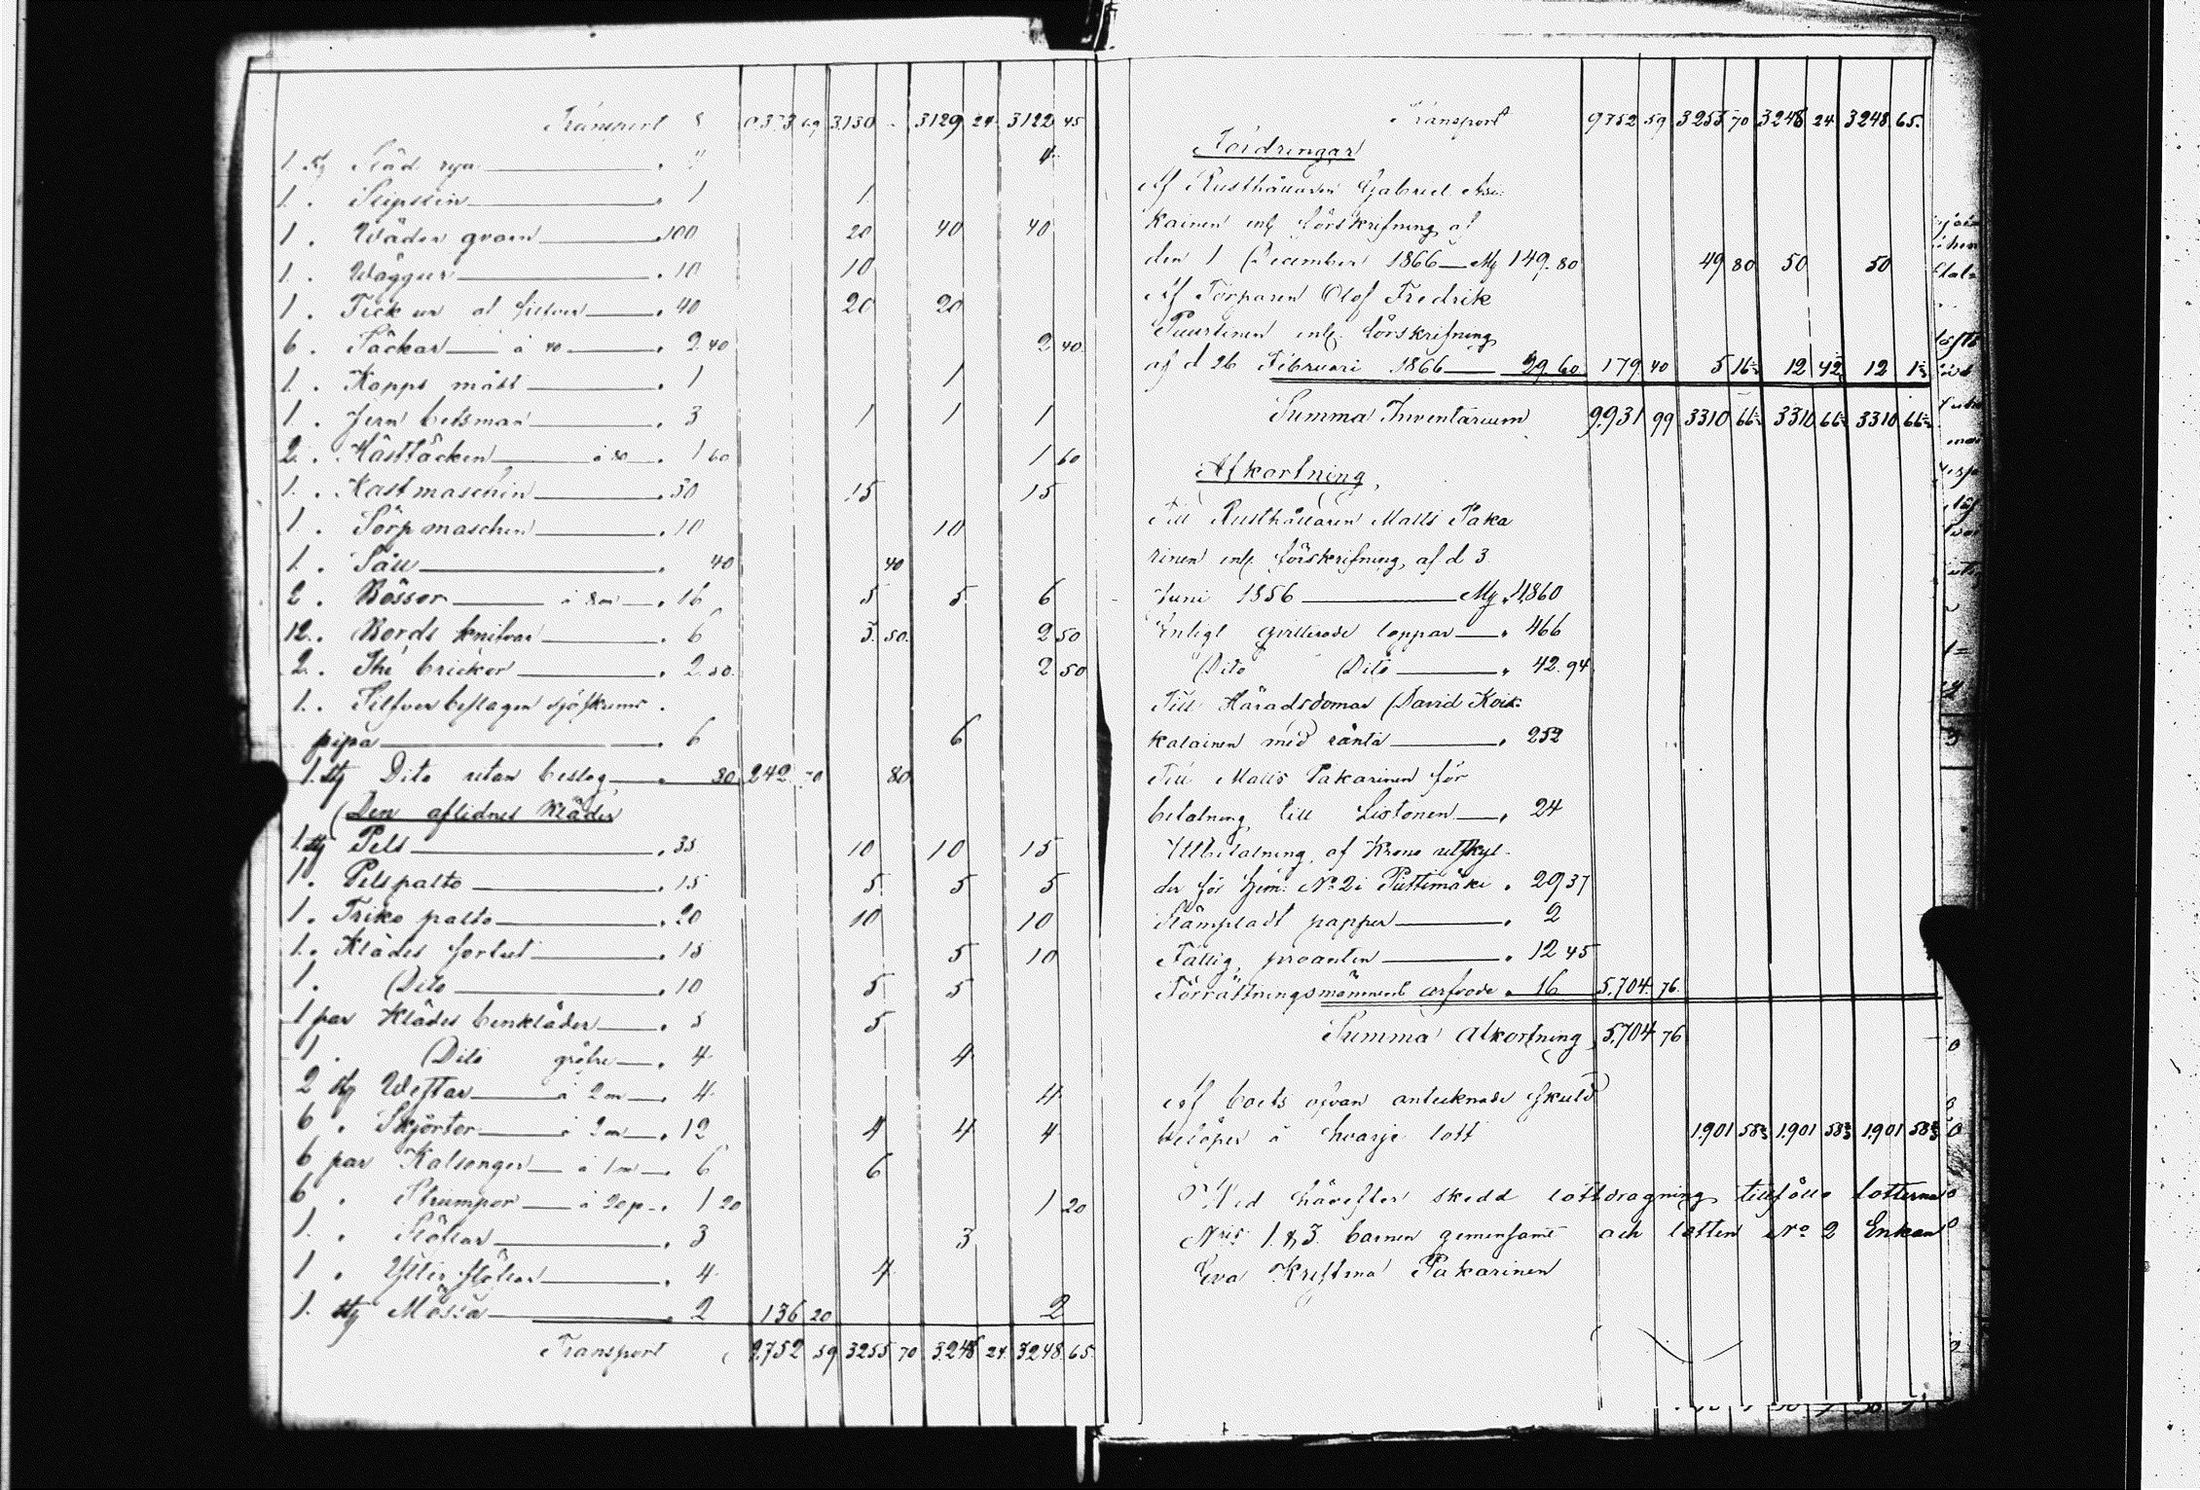 Transport 9373 69 3130 - 3129 24 3122 45
1 st Städ rya 4 4
1 . Slipsten 1 1
1 . Wäder qvarn 100 20 40 40
1 . Wäggur 10 10
1 . Fick ur af silfver 40 20 20
6 . Säckar à 40 2 40 2 40
1 . Kapps mått 1 1
1 . Jern betsman 3 1 1 1
2 . Hästtäcken à 80 1 60 1 60
1 . Kastmaschin 30 15 15
1 . Sörpmaschin 10 10
1 . Såll 40 40
2 . Bössor à 8 m 16 5 5 6
12 . Bords knifvar 6 3 50 2 50
2 . Thé brickor 2 50 2 50
1 . Silfverbeslagen sjöskums
pipa 6 6
1 st Dito utan beslag 80 242 70 80
Den aflidnes kläder
1 st Pels 35 10 10 15
1 . Pelspalto 15 5 5 5
1 . Triko palto 20 10 10
1 . Klädes sortut 15 5 10
1 . Dito 10 5 5
1 par Klädes benkläder 5 5
1 . Dito gröfre 4 4
2 st Westar à 2 m 4 4
6 . Skjortor à 2 m 12 4 4 4
6 par Kalsonger à 1 m 6 6
6 . Strumpor à 20 p 1 20 1 20
1 . Stöflar 3 3
1 . Ytter stöflar 4 4
1 st Mössa 2 136 20 2
Transport 9,752 59 3255 70 3248 24 3248 65
Transport 9752 59 3255 70 3248 24 3248 65
Fordringar
Af Rusthållaren Gabriel
kainen enl förskrifning af
den 1 December 1866 Mk 149.80 49 80 50 50
Af Torparen Olof Fredrik
Puurtinen enl. förskrifning
af d 26 Februari 1866 29.60 179 40 5 16⅔ 12 42⅔ 12 1⅔
Summa Inventarium 9,931 99 3310 66⅔ 3310 66⅔ 3310 66⅔
Afkortning
Till Rusthållaren Matts Paka
rinen enl. förskrifning, af d 3
Juni 1856 Mk 4,860
Enligt qvitterade lappar 466
Dito Dito 42.94
Till Häradsdomar David Koik
kalainen med ränta 252
Till Matts Pakarinen för
betalning till Liotonen 24
Utbetalning af Krono utskyl-
der för Hem: No 2 i Puttimäki 29 37
Stämpladt papper 2
Fattig procenten 12 45
Förrättningsmännens arfvode 16 5,704 76
Summa afkortning 5,704 76
Af boets ofvan antecknade skuld
belöper å hvarje lott 1,901 58⅔ 1,901 58⅔ 1,901 58⅔
Wid härefter skedd lottdragning tillföllo lotterna
Nris 1 & 3 barnen gemensamt och lotten No 2 Enkan
Eva Kristina Pakarinen